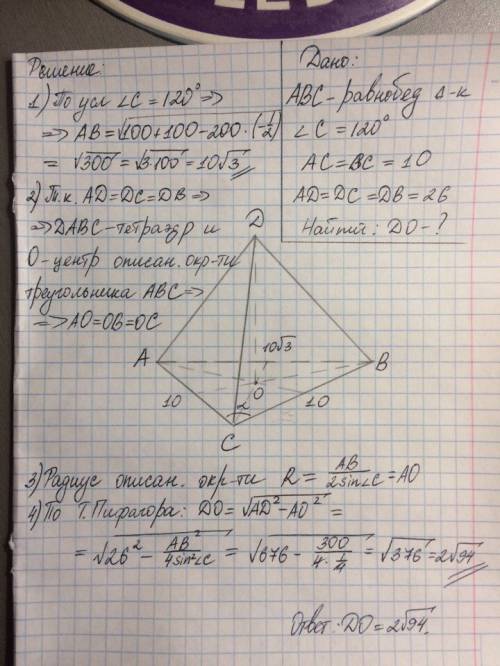 Решение:
1) По усл ∠C = 120° ⇒
⇒ AB = √100+100−200·(−1/2)
= √300 = √3·100 = 10√3
2) Т.к. AD = DC = DB ⇒
⇒ DABC – тетраэдр и
O – центр описан. окр-ти
треугольника ABC ⇒
⇒ AO = OB = OC
Дано:
ABC – равнобед Δ-к
∠C = 120°
AC = BC = 10
AD = DC = DB = 26
Найти: DO – ?
D
A
10√3
B
O
10
2
10
C
3) Радиус описан. окр-ти R = AB/2sin∠C = AO
4) По Т. Пифагора: DO = √AD² − AO² =
= √26² − AB²/4sin²∠C = √676 − 300/4·1/4 = √376 = 2√94
Ответ: DO = 2√94.